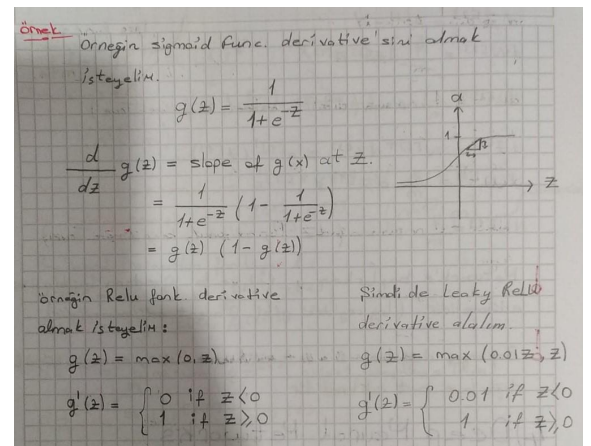 Örnek
Örneğin sigmoid func. derivative'sini almak
isteyelim.
g(z) = 1 / (1+e^-z)
d/dz g(z) = slope of g(x) at z.
= 1 / (1+e^-z) (1 - 1 / (1+e^-z))
= g(z) (1-g(z))
a
1
z
örneğin Relu fonk. derivative
almak isteyelim:
g(z) = max(0,z)
g'(z) = { 0 if z<0
1 if z≥0
Şimdi de Leaky ReLU
derivative alalım.
g(z) = max (0.01z, z)
g'(z) = { 0.01 if z<0
1 if z≥0